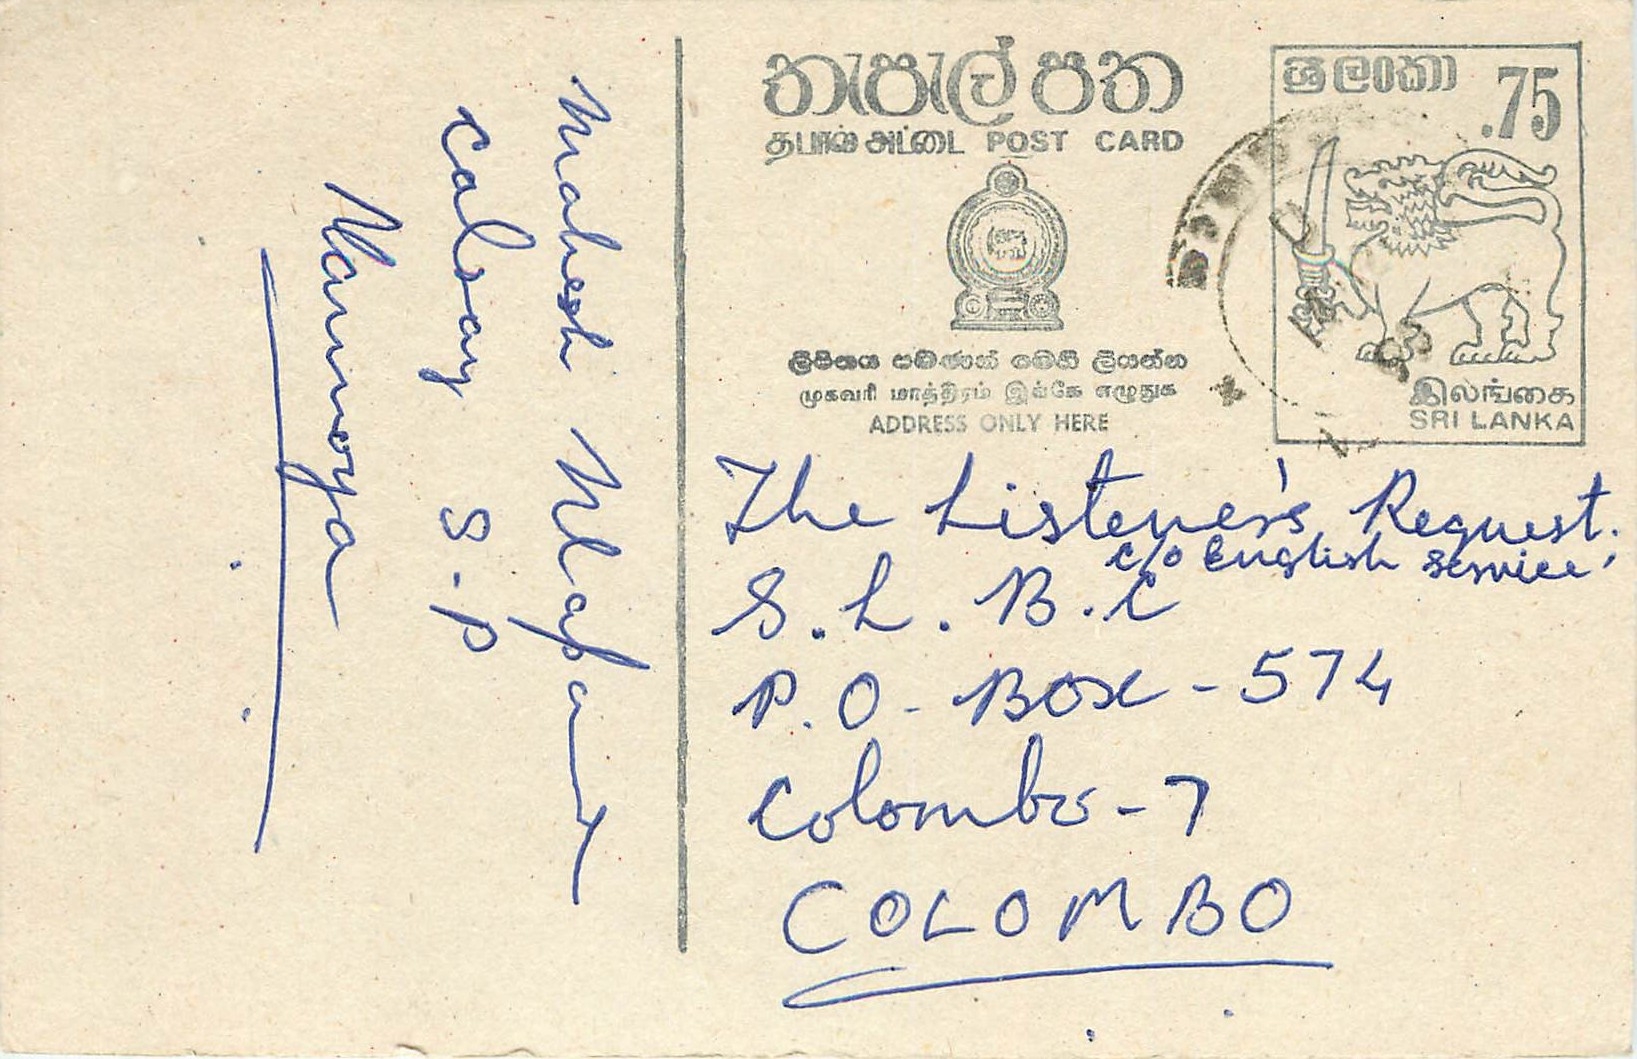 තැපැල් පත
தபால் அட்டை POST CARD
ශ්‍රී ලංකා .75
ලිපිනය පමණක් මෙහි ලියන්න
முகவரி மாத்திரம் இங்கே எழுதுக
ADDRESS ONLY HERE
இலங்கை
SRI LANKA
The Listener's Request.
c/o English Service.
S.L.B.C
P.O. Box - 574
Colombo - 7
COLOMBO
Mahesh
Calsay S.P